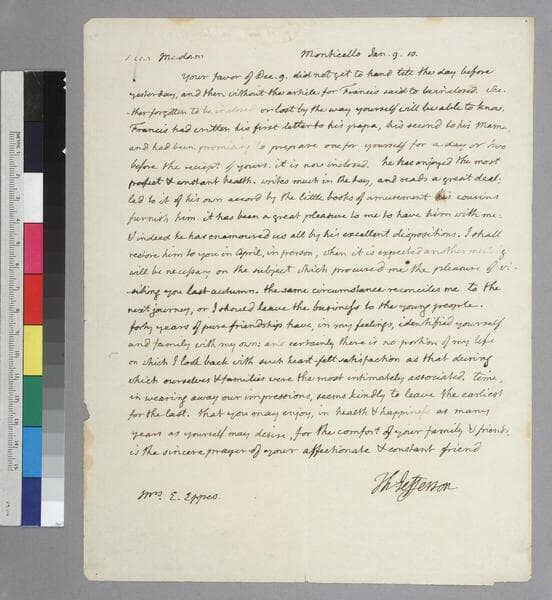 Madam Monticello Jan. 9. 10.
Your favor of Dec. 9. did not get to hand till the day before
yesterday, and then without the article for Francis said to be inclosed. whe-
-ther forgotten to be inclosed or lost by the way yourself will be able to know.
Francis had written his first letter to his papa, his second to his Mama,
and had been promising to prepare one for yourself for a day or two
before the reciept of yours. it is now inclosed. he has enjoyed the most
perfect & constant health. writes much in the day, and reads a great deal,
led to it of his own accord by the little books of amusement his cousins
furnish him. it has been a great pleasure to me to have him with me:
& indeed he has enamoured us all by his excellent dispositions. I shall
restore him to you in April, in person, when it is expected another meeting
will be necessary on the subject which procured me the pleasure of vi-
-siting you last autumn. the same circumstance reconciles me to the
next journey, or I should leave the business to the young people.
forty years of pure friendship have, in my feelings, identified yourself
and family with my own: and certainly there is no portion of my life
on which I look back with such heart-felt satisfaction as that during
which ourselves & families were the most intimately associated. time,
in wearing away our impressions, seems kindly to leave the earliest
for the last. that you may enjoy, in health & happiness as many
years as yourself may desire, for the comfort of your family & friends,
is the sincere prayer of your affectionate & constant friend
Th Jefferson
Mrs. E. Eppes.